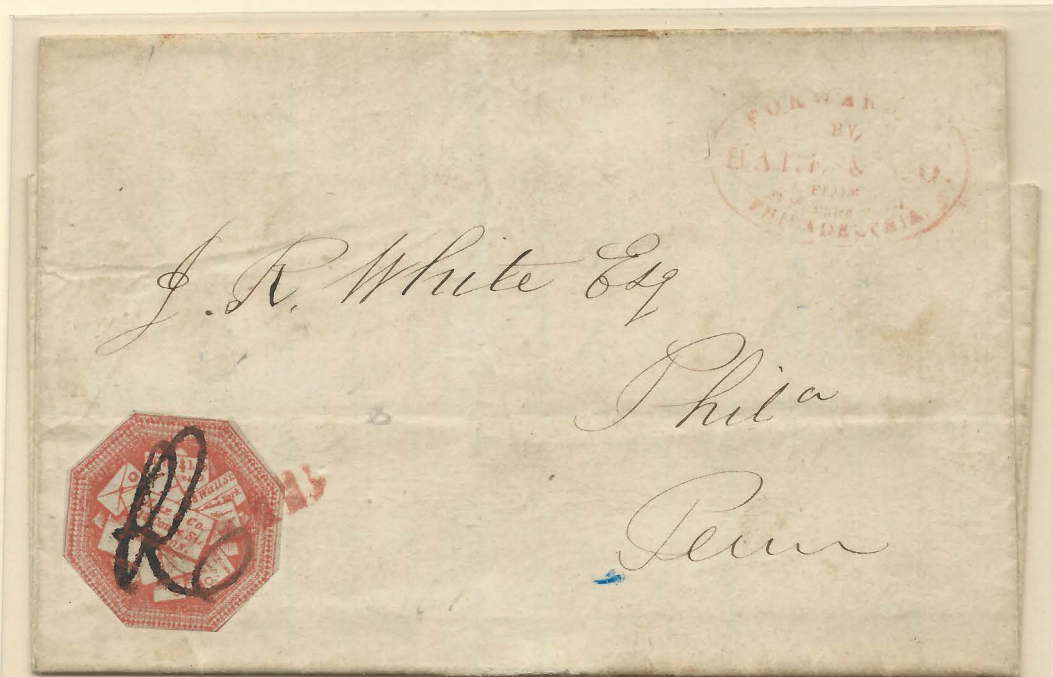 FORWARD
BY
HALE & CO.
FROM
PHILADELPHIA.
J. R. White Esq
Phila
Penn
$1
Wall St
& Co.
PAID